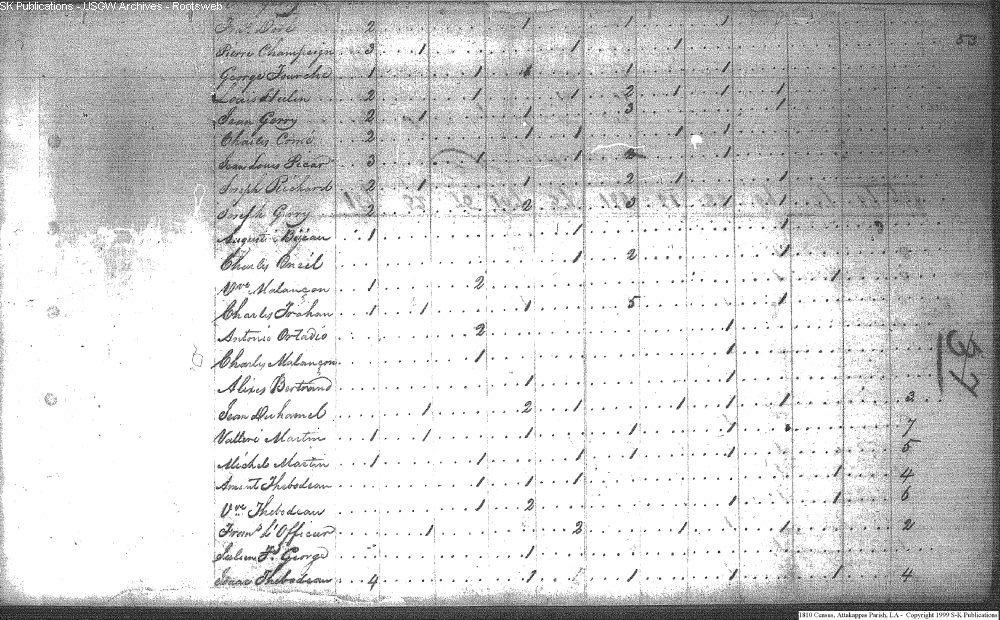 SK Publications - USGW Archives - Rootsweb
53
2 1 1 1
Pierre Champeign 3 1 1 1
George Fourche 1 1 1 1 1
Louis Helin 2 1 1 2 1 1 1
Jean Gerry 2 1 1 3 1
Charles Comé 2 1 1 1 1
Jean Louis Picar 3 1 1 2 1
Joseph Richard 2 1 1 2 1 1
Joseph Gerry 2 2 1 1
Augusti 1 1 1 3
Charles 1 2 1
Vve Malançon 1 2 1
Charles Trahan 1 1 1 5 1
Antonio Ortadio 2 1
Charles Malançon 1 1
Alexis Bertrand 1 1
Jean Duhamel 1 2 1 1 1 1 3
Martin 1 1 1 1 1 7
Michele Martin 1 1 1 1 1 5
Thebodeau 1 1 1 1 4
Vve Thebodeau 1 2 1 1 6
L'Officier 1 2 1 1 2
George 1
Isaac Thebodeau 4 1 1 1 1 4
1810 Census, Attakappas Parish, LA - Copyright 1999 S-K Publications